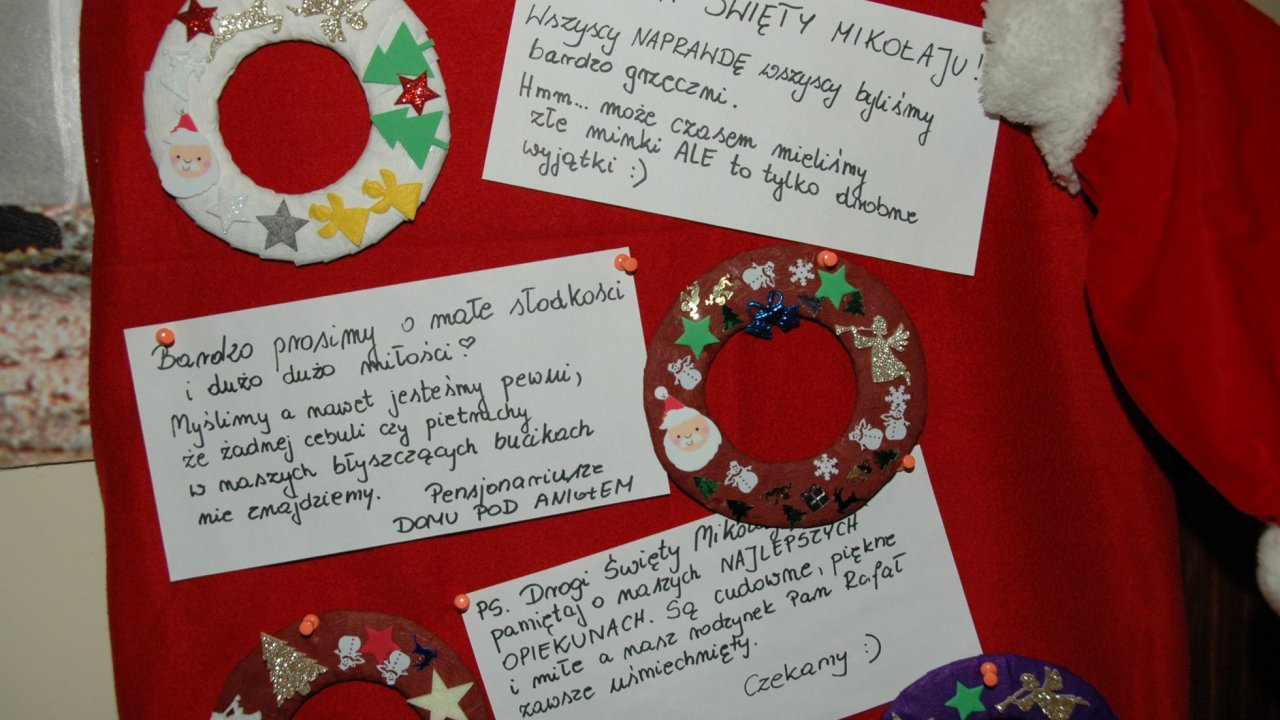 ŚWIĘTY MIKOŁAJU!
Wszyscy NAPRAWDĘ wszyscy byliśmy
bardzo grzeczni.
Hmm... może czasem mieliśmy
złe minki ALE to tylko drobne
wyjątki :)
Bardzo prosimy o małe słodkości
i dużo dużo miłości ♡
Myślimy a nawet jesteśmy pewni,
że żadnej cebuli czy pietruchy
w naszych błyszczących bucikach
nie znajdziemy. Pensjonariusze
DOMU POD ANIOŁEM
PS. Drogi Święty
pamiętaj o naszych NAJLEPSZYCH
OPIEKUNACH. Są cudowne, piękne
i miłe a nasz rodzynek Pan Rafał
zawsze uśmiechnięty.
Czekamy :)